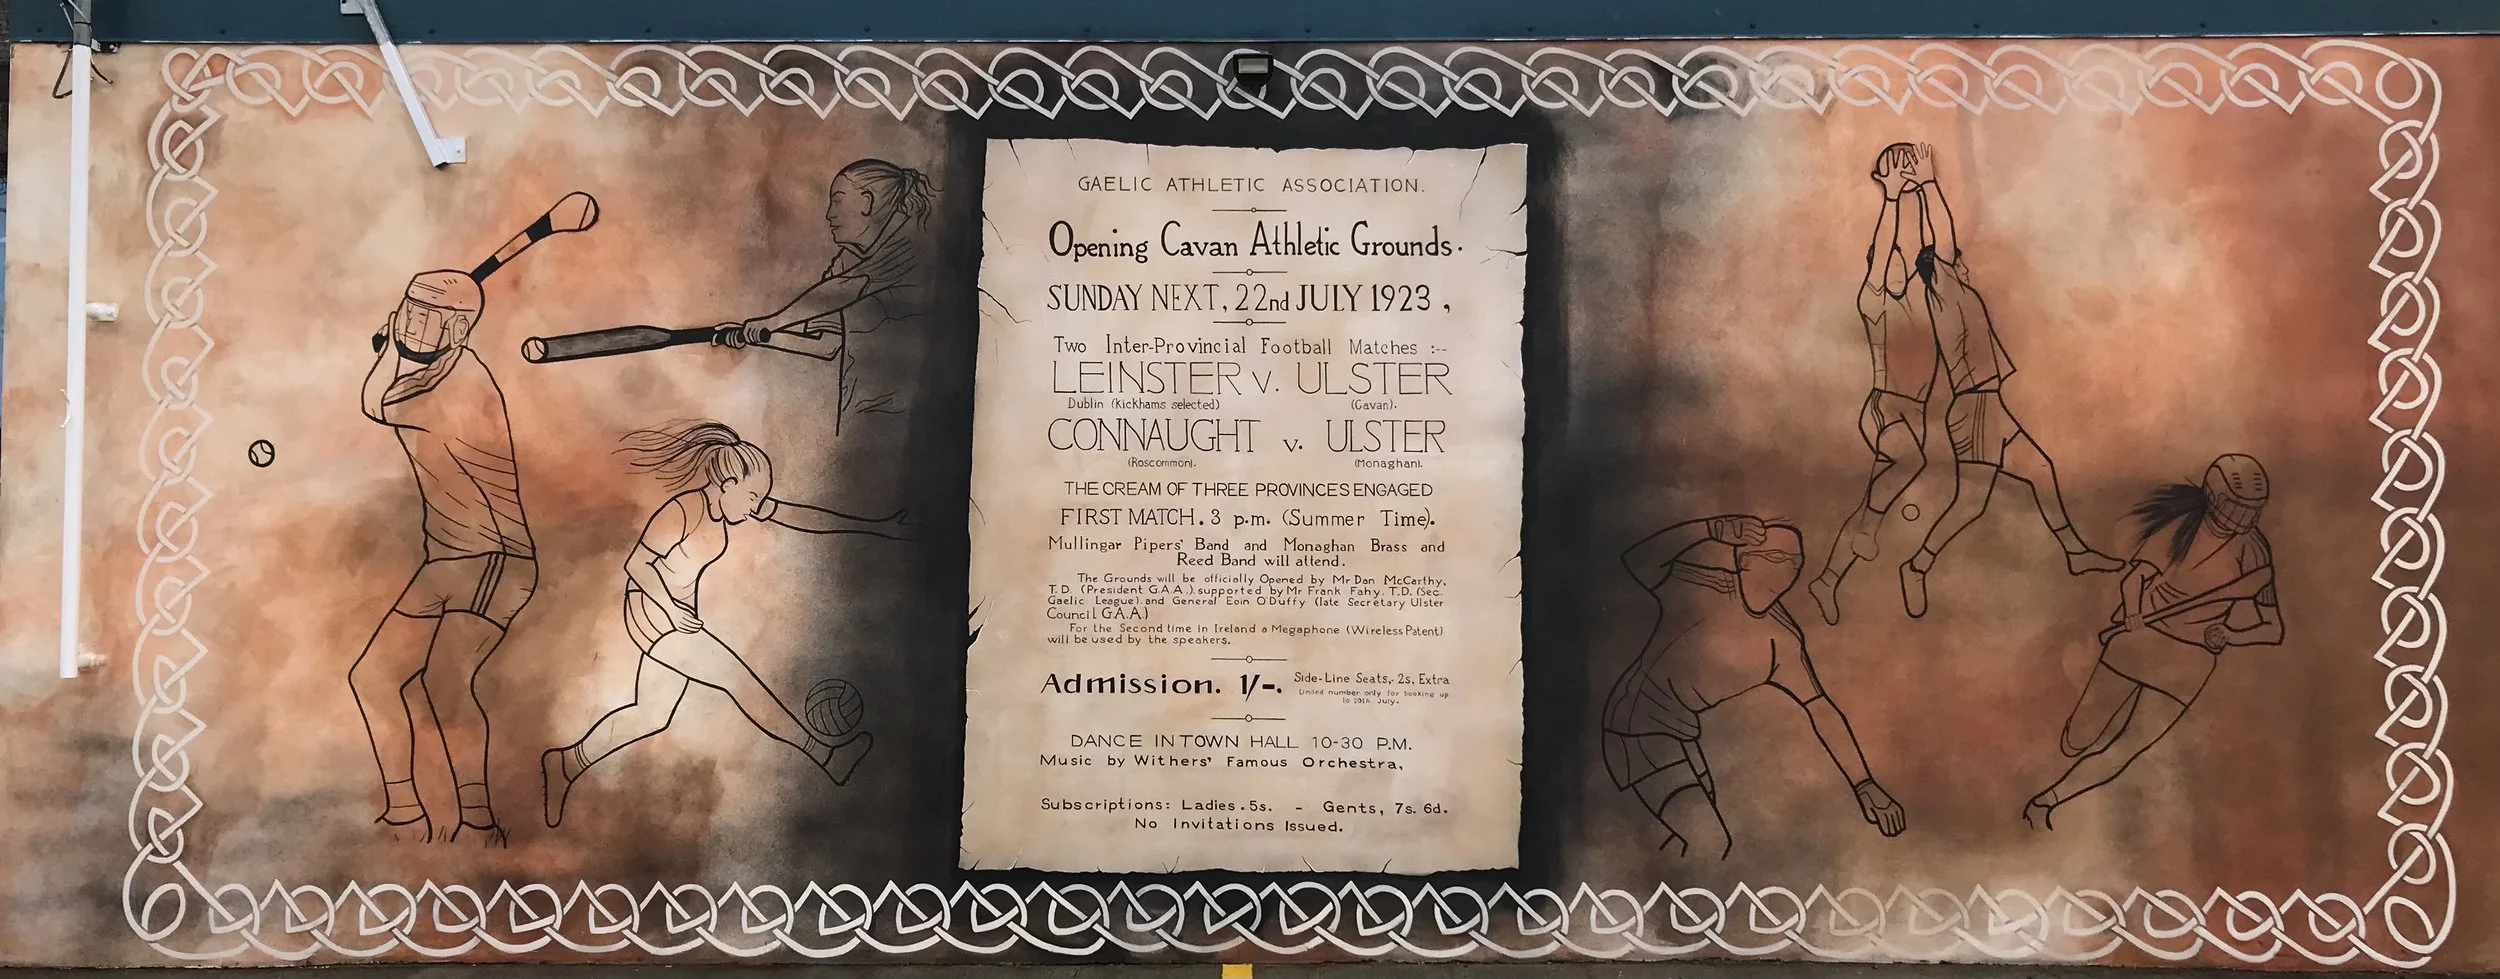 GAELIC ATHLETIC ASSOCIATION.
Opening Cavan Athletic Grounds.
SUNDAY NEXT, 22nd JULY 1923,
Two Inter-Provincial Football Matches :--
LEINSTER v. ULSTER
Dublin (Kickhams selected) (Cavan).
CONNAUGHT v. ULSTER
(Roscommon). (Monaghan).
THE CREAM OF THREE PROVINCES ENGAGED
FIRST MATCH. 3 p.m. (Summer Time).
Mullingar Pipers' Band and Monaghan Brass and
Reed Band will attend.
The Grounds will be officially Opened by Mr Dan McCarthy,
T.D. (President G.A.A.). supported by Mr Frank Fahy. T.D. (Sec.
Gaelic League). and General Eoin O'Duffy (late Secretary Ulster
Council G.A.A.)
For the Second time in Ireland a Megaphone (Wireless Patent)
will be used by the speakers.
Admission. 1/-. Side-Line Seats,- 2s, Extra
Limited number only for booking up
to 20th. July.
DANCE IN TOWN HALL 10-30 P.M.
Music by Withers' Famous Orchestra,
Subscriptions: Ladies. 5s. - Gents, 7s. 6d.
No Invitations Issued.